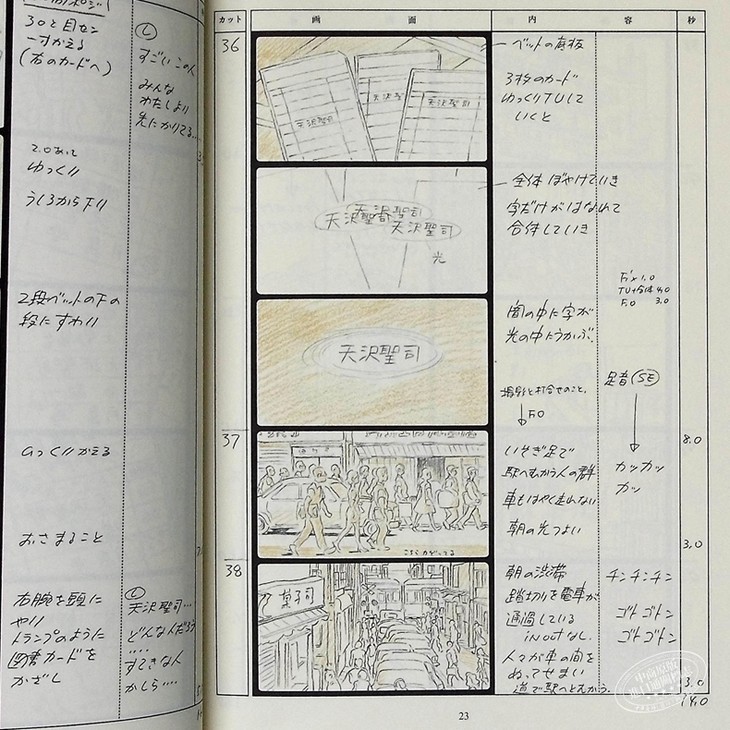 30と目セン
一寸かえる
(右のカードへ)
し
すごいこの人
みんな
わたしより
先にかりてる…
2.0あって
ゆっくり
うしろから下り
2段ベットの下の
段にすわり
ゆっくりかえる
おさまること
右腕を頭に
やり
トランプのように
図書カードを
かざし
し
天沢聖司…
どんなんだろう
….
すてきな人
かしら….
カット
画面
内容
秒
36
天沢聖司
天沢聖
天沢聖司
ベットの底板
3枚のカード
ゆっくりTUして
いくと
天沢聖司
天沢聖司
天沢聖司
光
全体ぼやけていき
字だけがはなれて
合体していき
1.0
TU+合体 4.0
F.O 3.0
天沢聖司
闇の中に字が
光の中にうかぶ.
撮影と打合せのこと.
F.O
足音(SE)
8.0
37
いそぎ足で
駅へむかう人の群
車もはやく走れない
朝の光つよい
カッカッ
カッ
3.0
38
菓子司
朝の渋滞
踏切りを電車が
通過している
in outなし.
人々が車の間を
ぬってせまい
道で駅へとむかう.
チンチンチン
ゴトゴトン
ゴトゴトン
3.0
14.0
23